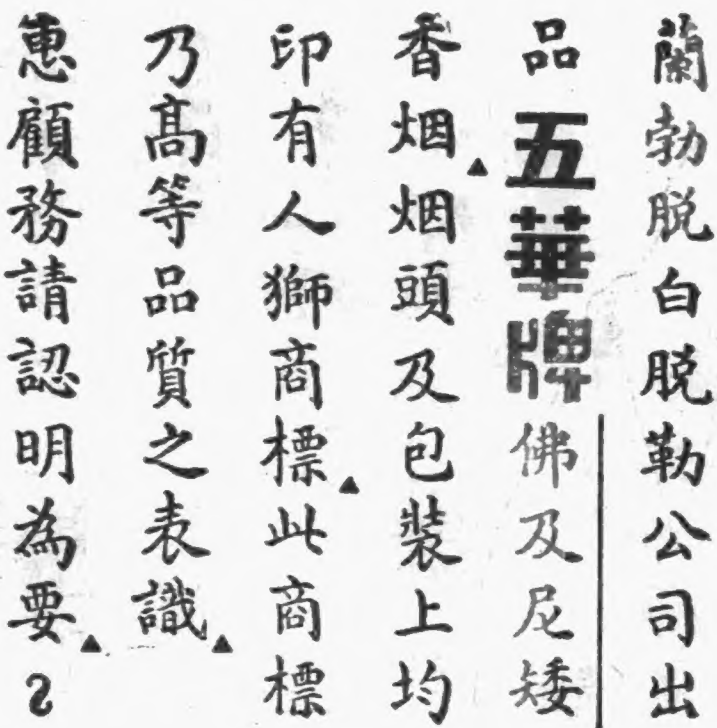 蘭勃脱白脱勒公司出
品五華牌佛及尼矮
香烟▲烟頭及包裝上均
印有人獅商標▲此商標
乃高等品質之表識▲
惠顧務請認明為要▲